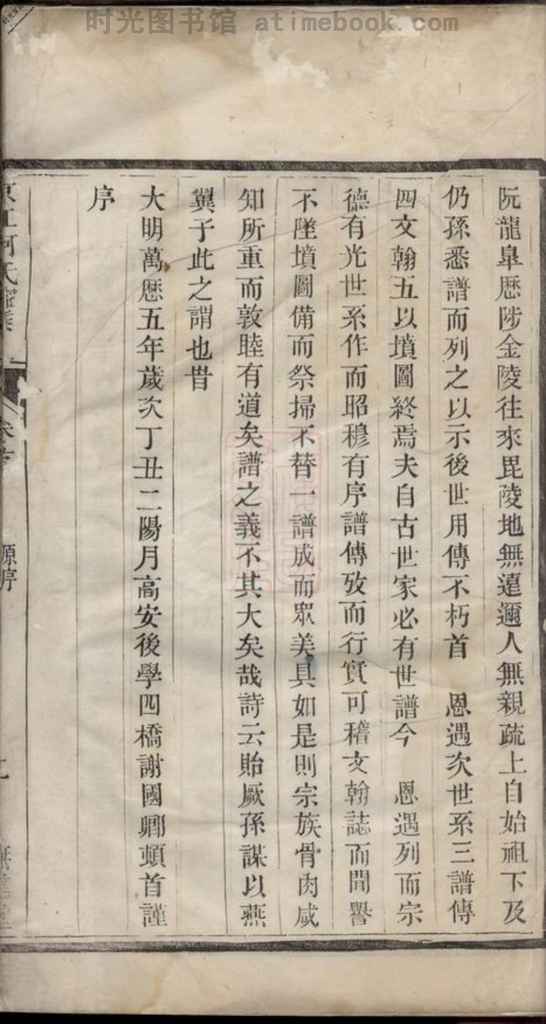 时光图书馆 atimebook.com
阮龍臯歷陟金陵往來毘陵地無遐邇人無親疏上自始祖下及
仍孫悉譜而列之以示後世用傳不朽首 恩遇次世系三譜傳
四文翰五以墳圖終焉夫自古世家必有世譜今 恩遇列而宗
德有光世系作而昭穆有序譜傳攷而行實可稽文翰誌而聞譽
不墜墳圖備而祭掃不替一譜成而眾美具如是則宗族骨肉咸
知所重而敦睦有道矣譜之義不其大矣哉詩云貽厥孫謀以燕
翼于此之謂也昔
大明萬歷五年歲次丁丑二陽月高安後學四橋謝國卿頓首謹
序
源序